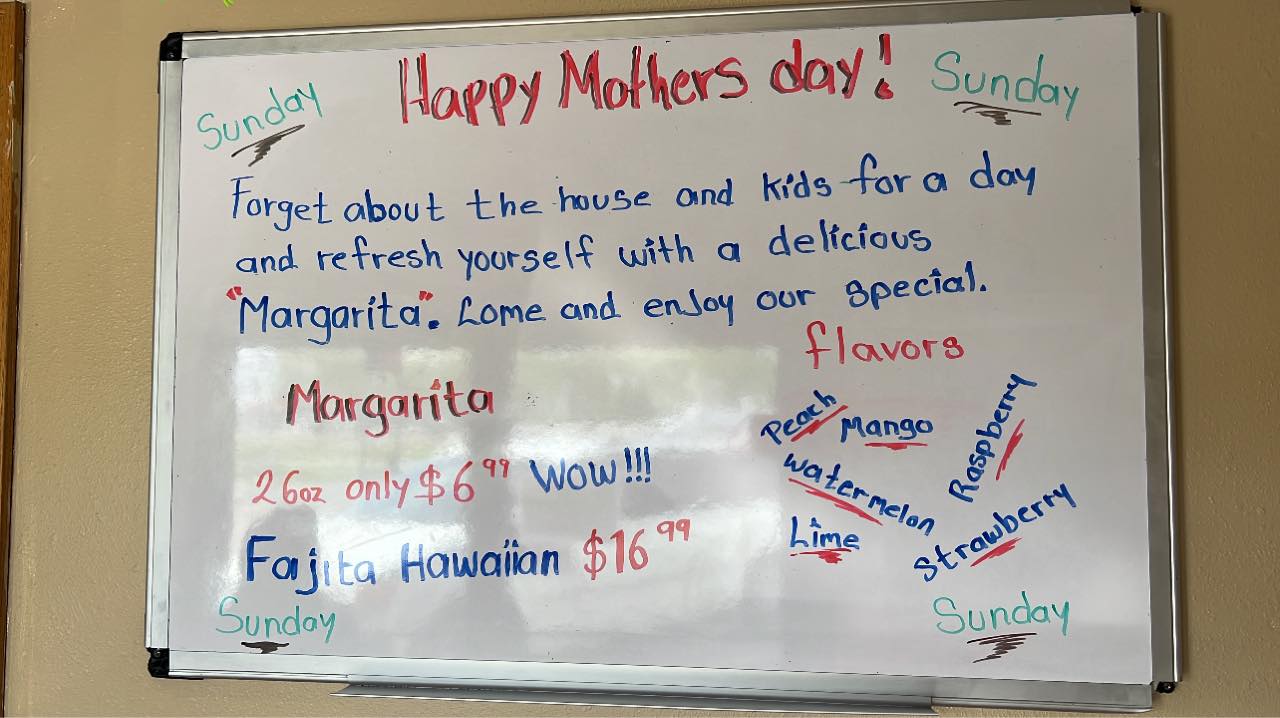 Happy Mothers day!
Sunday
Sunday
Forget about the house and kids for a day
and refresh yourself with a delicious
"Margarita". Come and enjoy our special.
flavors
Margarita
Peach
Mango
Raspberry
watermelon
Lime
Strawberry
26oz only $6 99 WOW!!!
Fajita Hawaiian $16 99
Sunday
Sunday